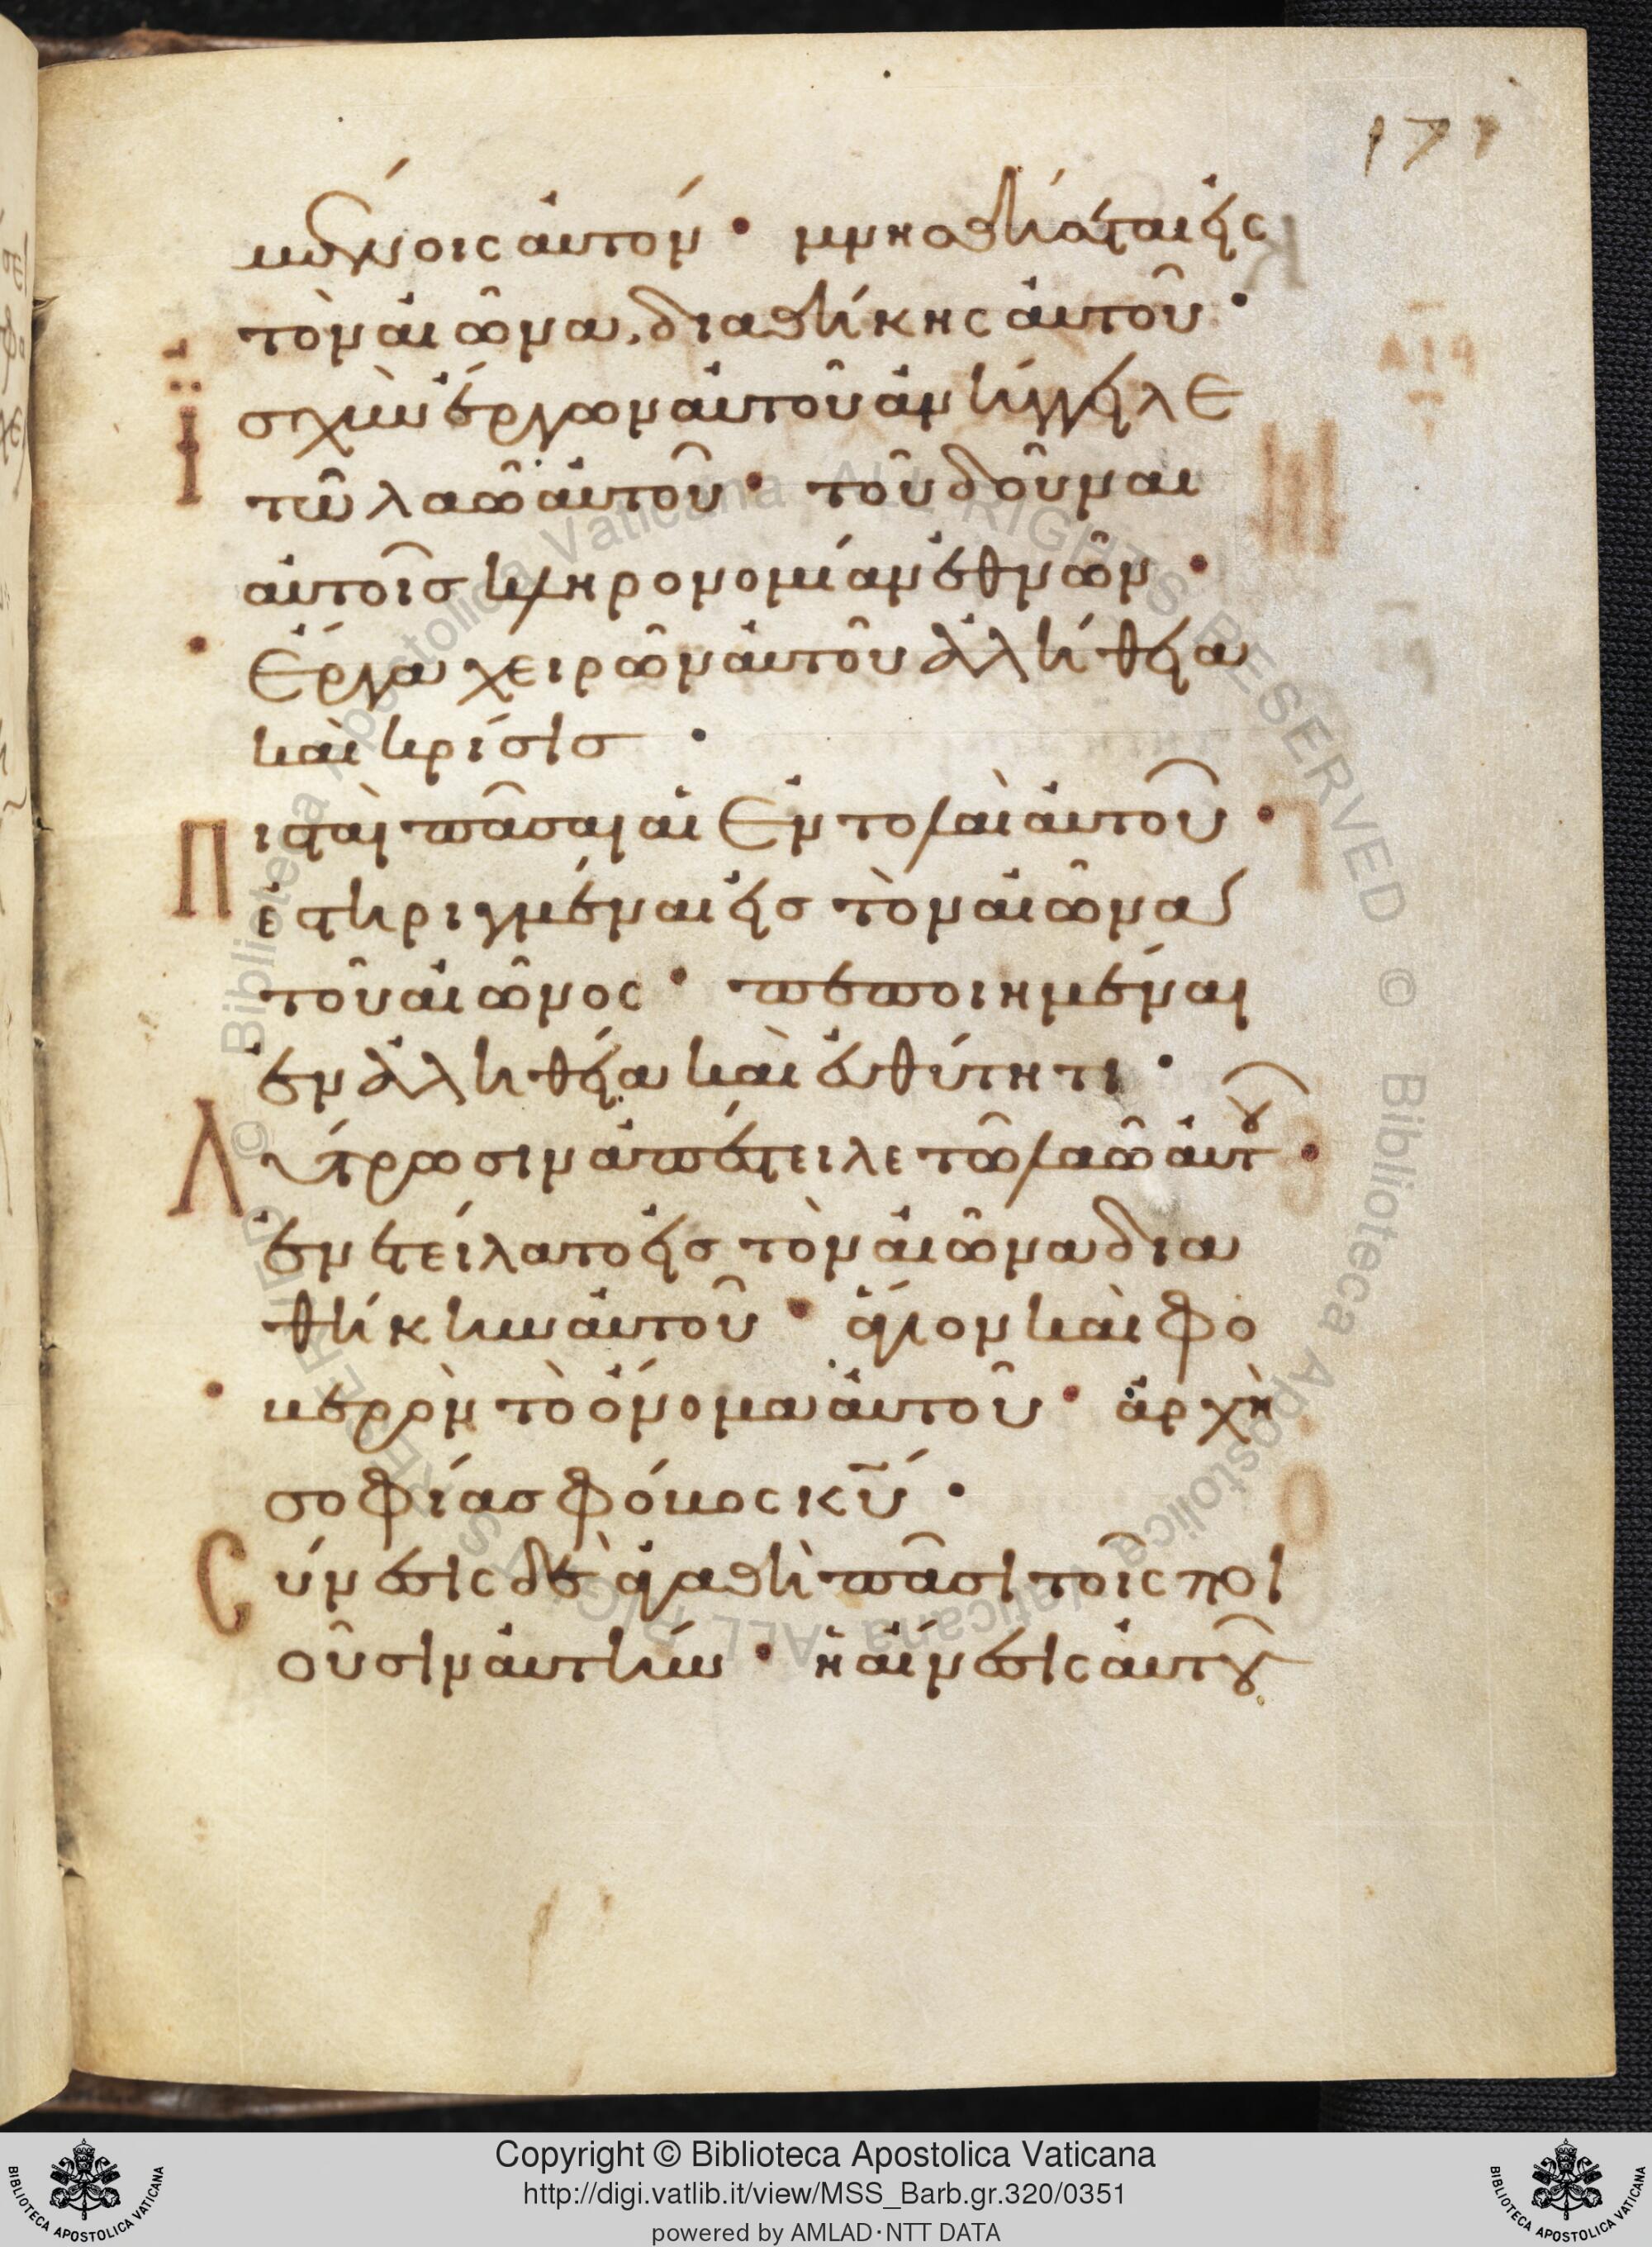 171
μένοις αὐτόν · μνησθήσεται εἰς
τὸν αἰῶνα, διαθήκης αὐτοῦ ·
Ἰσχὺν ἔργων αὐτοῦ ἀνήγγειλε
τῶ λαῶ αὐτοῦ · τοῦ δοῦναι
αὐτοῖσ κληρονομίαν ἐθνῶν ·
Ἔργα χειρῶν αὐτοῦ ἀλήθεια
καὶ κρίσισ ·
Πισταὶ πᾶσαι αἱ ἐντολαὶ αὐτοῦ ·
ἐστηριγμέναι εἰσ τὸν αἰῶνα
τοῦ αἰῶνος · πεποιημέναι
ἐν ἀληθεία καὶ εὐθύτητι ·
Λύτρωσιν ἀπέστειλε τῶ λαῶ αὐτοῦ ·
ἐνετείλατο εἰσ τὸν αἰῶνα δια
θήκην αὐτοῦ · ἅγιον καὶ φο
βερὸν τὸ ὄνομα αὐτοῦ · ἀρχὴ
σοφίασ φόβος κυ ·
Σύνεσις δὲ ἀγαθὴ πᾶσι τοῖς ποι
οῦσιν αὐτήν · ἡ αἴνεσις αὐτοῦ
Copyright © Biblioteca Apostolica Vaticana
http://digi.vatlib.it/view/MSS_Barb.gr.320/0351
powered by AMLAD·NTT DATA